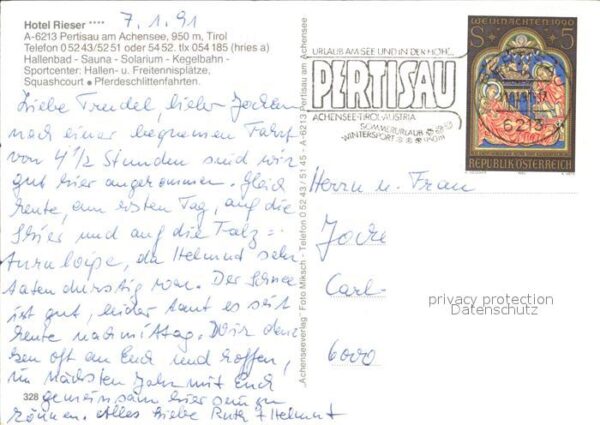 Hotel Rieser ****
7.1.91
A-6213 Pertisau am Achensee, 950 m, Tirol
Telefon 0 52 43/52 51 oder 54 52. tlx 054 185 (hries a)
Hallenbad - Sauna - Solarium - Kegelbahn -
Sportcenter: Hallen- u. Freitennisplätze,
Squashcourt • Pferdeschlittenfahrten.
Liebe Trudel, lieber Jochen
nach einer bequemen Fahrt
von 4 1/2 Stunden sind wir
gut hier angekommen. Gleich
heute, am ersten Tag, auf die
Skier und auf die Falz=
turnloipe, da Helmut sehr
tatendurstig war. Der Schnee
ist gut, leider taut es seit
heute nachmittag. Wir den=
ken oft an Euch und hoffen,
im nächsten Jahr mit Euch
gemeinsam hier sein zu
können. Alles Liebe Ruth + Helmut
328
"Achenseeverlag" Foto Miksch - Telefon 0 52 43 / 51 45 - A-6213 Pertisau am Achensee
URLAUB AM SEE UND IN DER HÖHE...
PERTISAU
ACHENSEE-TIROL-AUSTRIA
SOMMERURLAUB
WINTERSPORT
WEIHNACHTEN 1990
S 5
6213
REPUBLIK ÖSTERREICH
Herrn u. Frau
Carl-
6000
privacy protection
Datenschutz